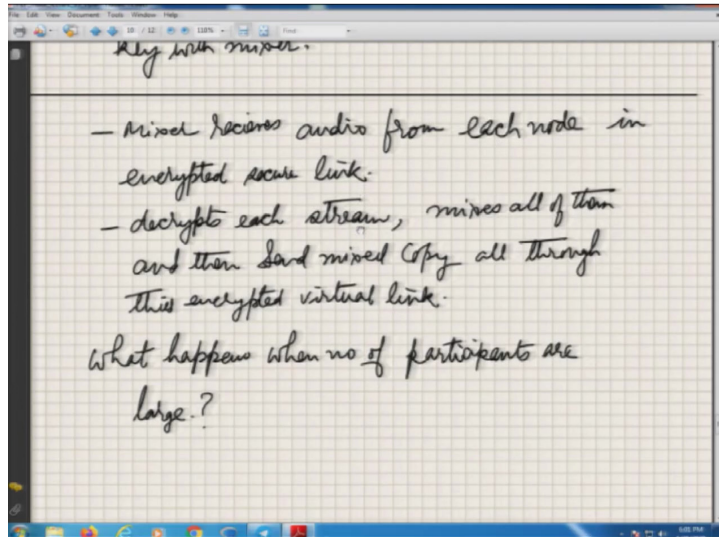 File Edit View Document Tools Window Help
18 / 12 118% Find
key with mixer.
- Mixer recieves audio from each node in
encrypted secure link.
- decrypts each stream, mixes all of them
and then send mixed copy all through
this encrypted virtual link.
what happens when no of participants are
large.?
5:01 PM